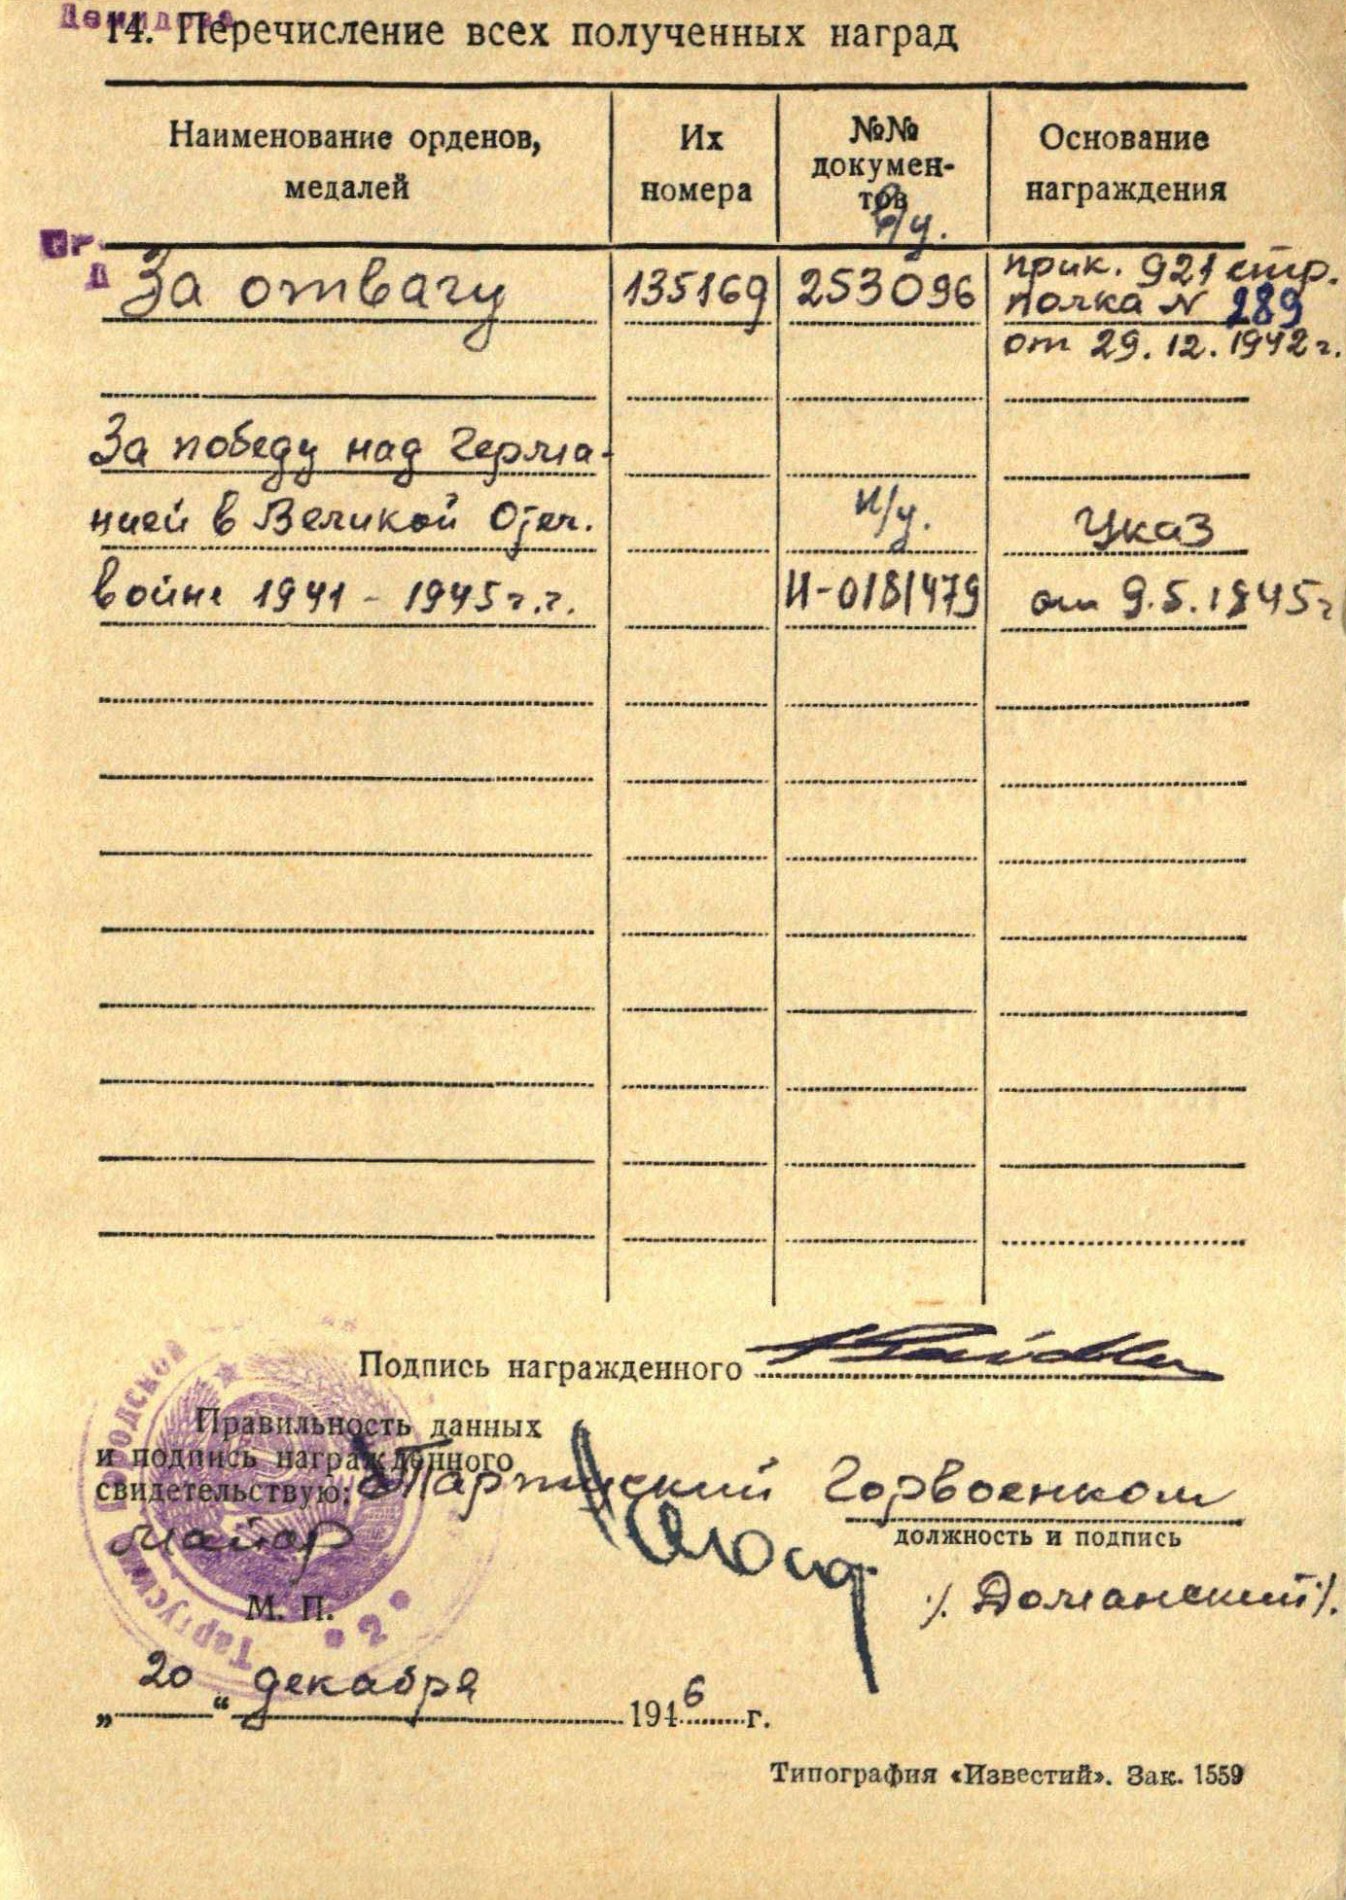 14. Перечисление всех полученных наград
Наименование орденов, медалей
Их номера
№№ докумен-тов
Основание награждения
в/у.
За отвагу 135169 253096 прик. 921 стр.
полка N 289
от 29.12.1942 г.
За победу над Герма-
нией в Великой Отеч. и/у. Указ
войне 1941 - 1945 г.г. И-0181479 от 9.5.1945 г
Подпись награжденного
Правильность данных
и подпись награжденного
свидетельствую: Тартуский Горвоенком
должность и подпись
Майор
/. Доманский /.
М. П.
„ 20 “ декабря 1946 г.
Типография «Известий». Зак. 1559